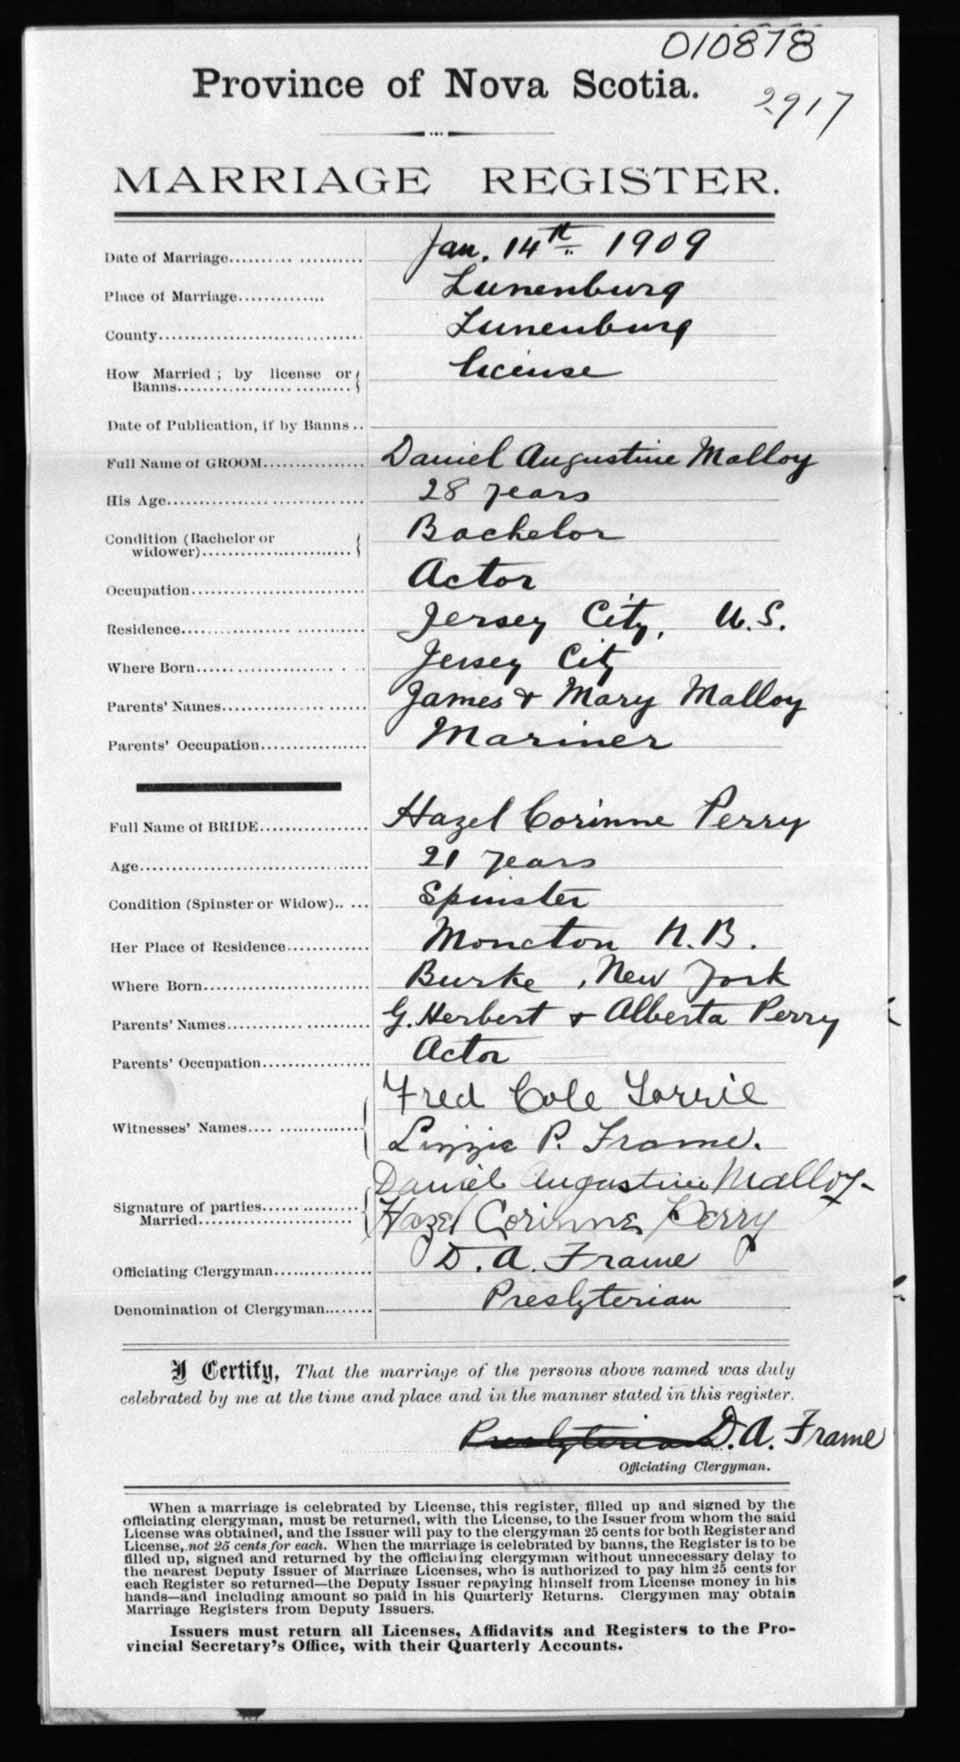 010878
Province of Nova Scotia.
2917
MARRIAGE REGISTER.
Date of Marriage.......... .......... Jan. 14th 1909
Place of Marriage.............. Lunenburg
County............................... Lunenburg
How Married ; by license or License
Banns..............................
Date of Publication, if by Banns ..
Full Name of GROOM................ Daniel Augustine Malloy
His Age............................... 28 years
Condition (Bachelor or Bachelor
widower)..........................
Occupation........................... Actor
Residence............................ Jersey City, U.S.
Where Born.......................... Jersey City
Parents' Names...................... James & Mary Malloy
Parents' Occupation................. Mariner
Full Name of BRIDE................. Hazel Corinne Perry
Age................................... 21 years
Condition (Spinster or Widow).. ... Spinster
Her Place of Residence............. Moncton N.B.
Where Born......................... Burke, New York
Parents' Names..................... G. Herbert & Alberta Perry
Parents' Occupation................. Actor
Fred Cole Torrie
Witnesses' Names.... ..............
Lizzie P. Frame.
Daniel Augustine Malloy-
Signature of parties..................
Married........................... Hazel Corinne Perry
Officiating Clergyman............... D. A. Frame
Denomination of Clergyman........ Presbyterian
I Certify, That the marriage of the persons above named was duly
celebrated by me at the time and place and in the manner stated in this register.
Presbyterian D. A. Frame
Officiating Clergyman.
When a marriage is celebrated by License, this register, filled up and signed by the
officiating clergyman, must be returned, with the License, to the Issuer from whom the said
License was obtained, and the Issuer will pay to the clergyman 25 cents for both Register and
License, not 25 cents for each. When the marriage is celebrated by banns, the Register is to be
filled up, signed and returned by the officiating clergyman without unnecessary delay to
the nearest Deputy Issuer of Marriage Licenses, who is authorized to pay him 25 cents for
each Register so returned—the Deputy Issuer repaying himself from License money in his
hands—and including amount so paid in his Quarterly Returns. Clergymen may obtain
Marriage Registers from Deputy Issuers.
Issuers must return all Licenses, Affidavits and Registers to the Pro-
vincial Secretary's Office, with their Quarterly Accounts.